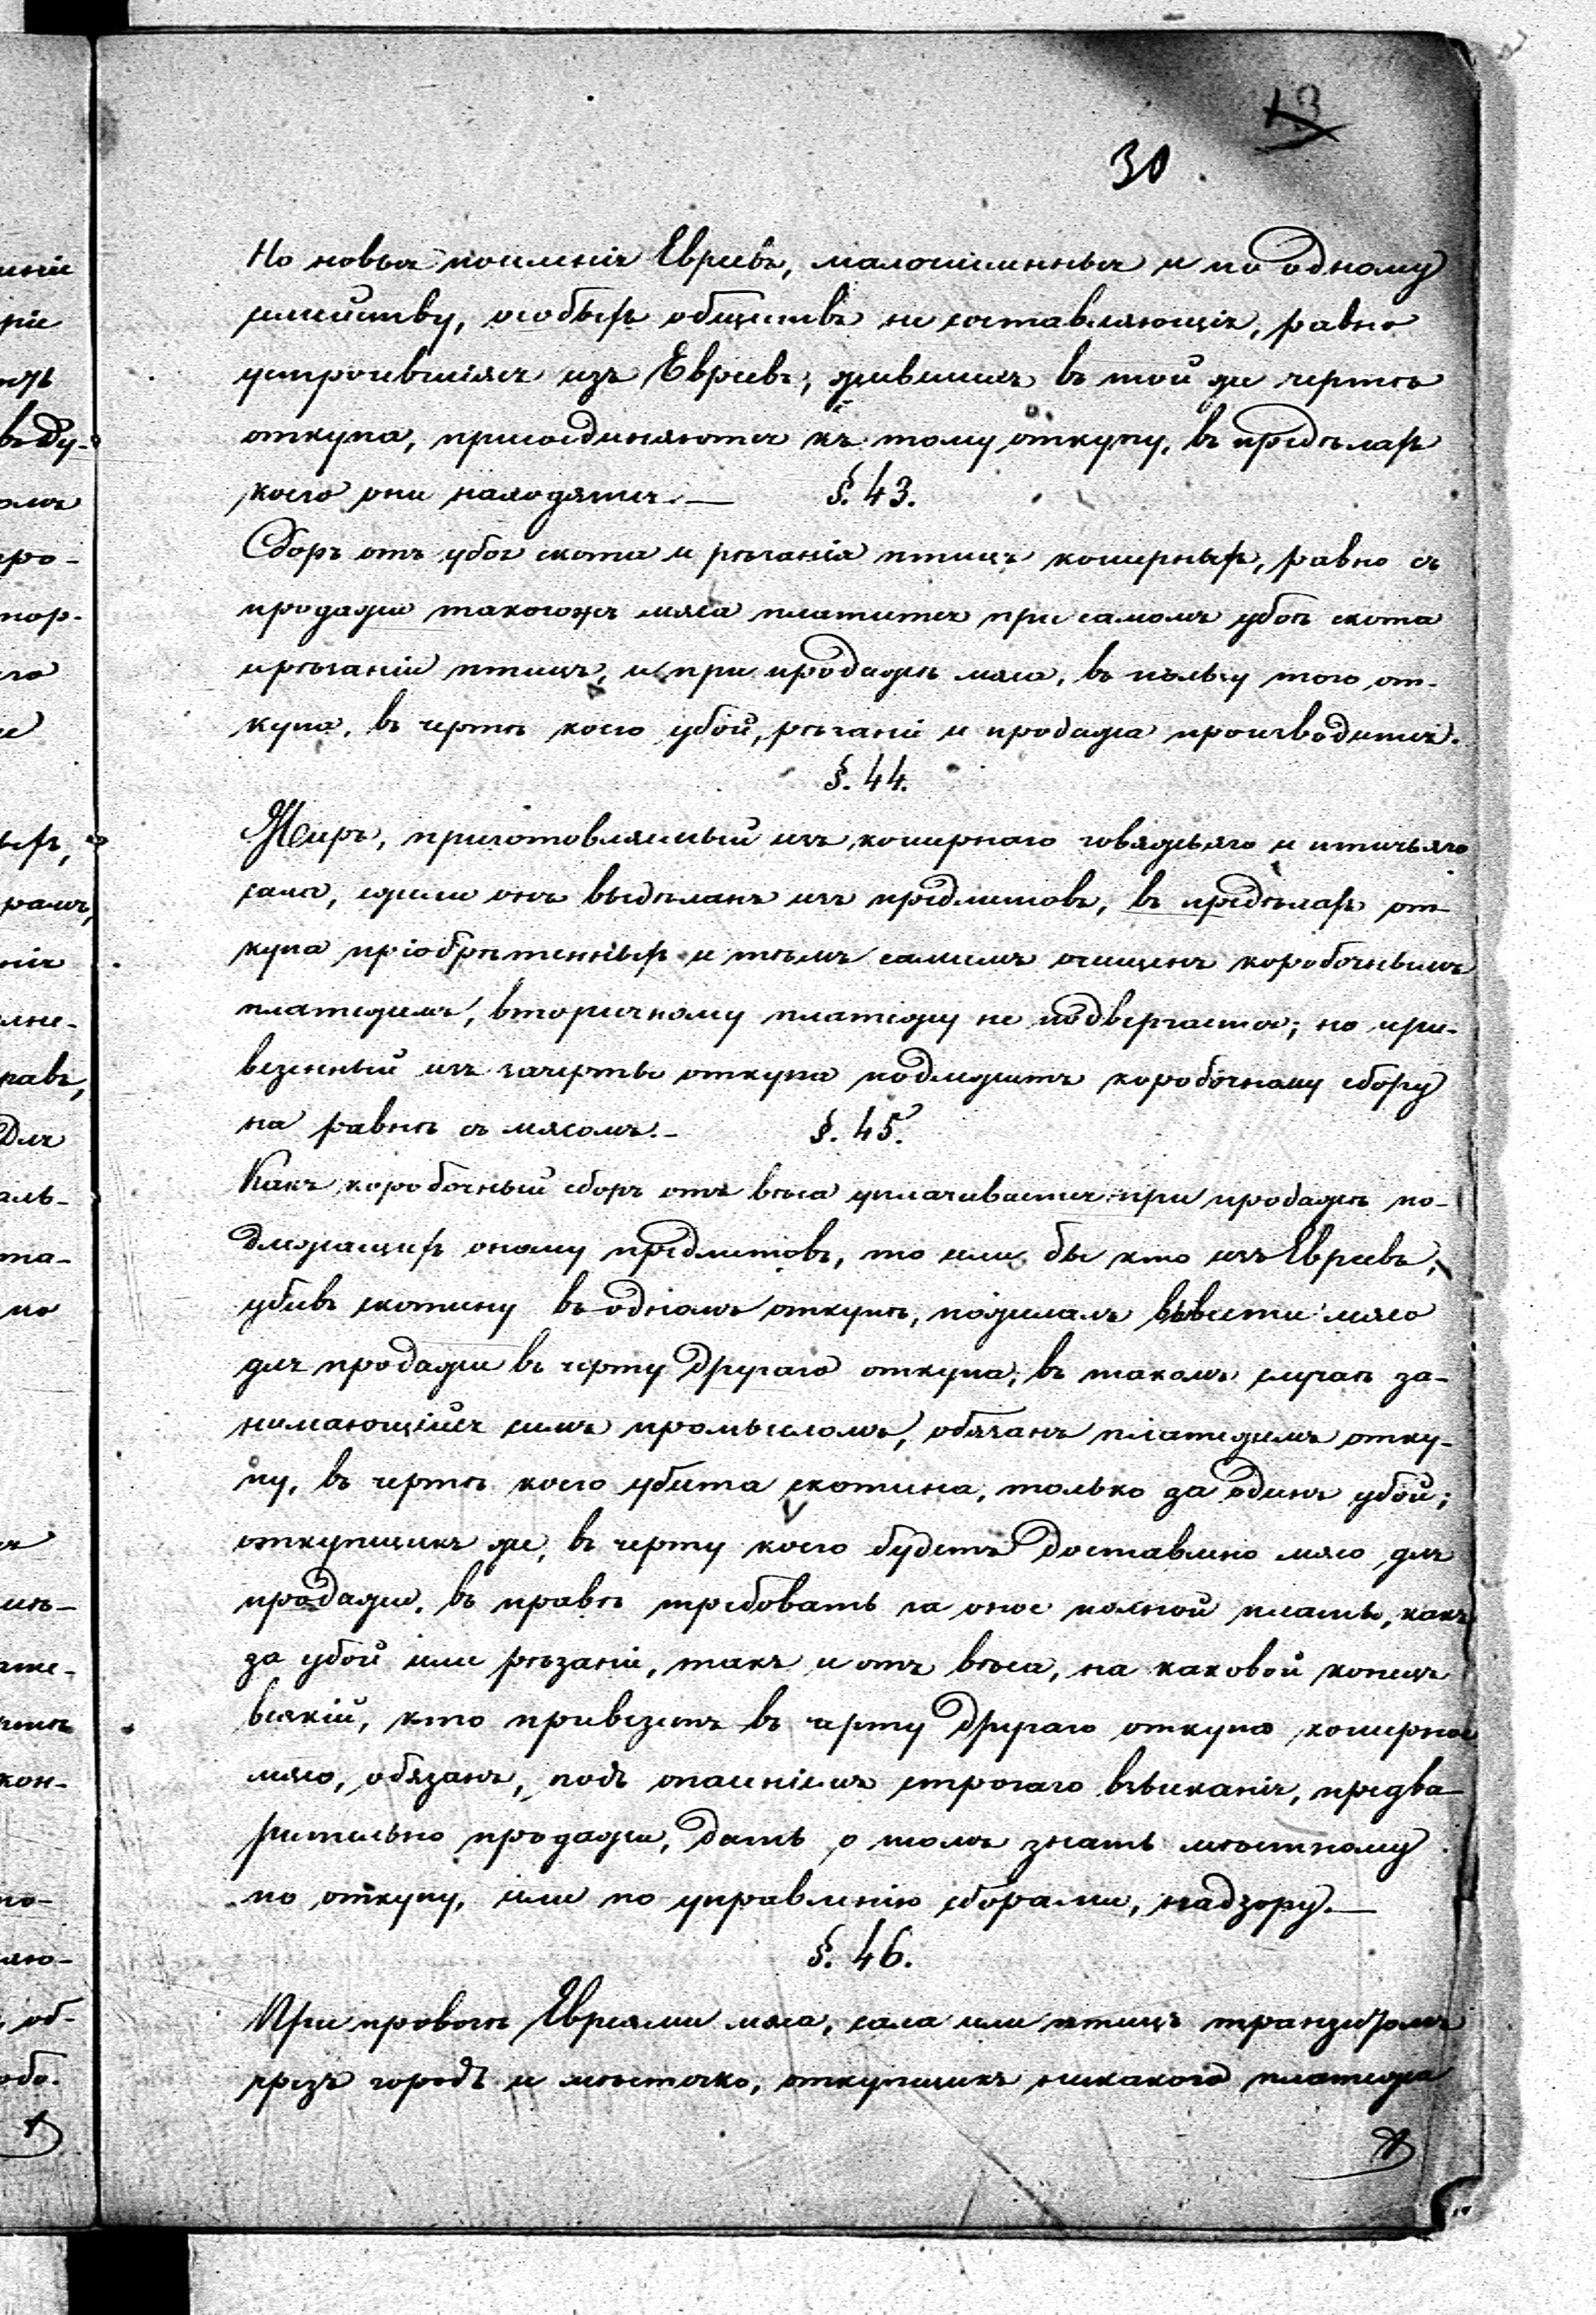 13
30.
Но новыя поселенія Евреевъ, малочисленныя и по одному
имуществу, особыхъ обществъ не составляющія, равно
устроившіяся изъ Евреевъ, жившихъ въ той же чертѣ
откупа, присоединяются къ тому откупу, въ предѣлахъ
коего они находятся.—
§. 43.
Сборъ отъ убоя скота и рѣзанія птицъ кошерныхъ, равно съ
продажи таковогожъ мяса платится при самомъ убоѣ скота
и рѣзаніи птицъ, и при продажѣ мяса, въ пользу того от-
купа, въ чертѣ коего убой, рѣзаніе и продажа производится.
§. 44.
Жиръ, приготовляемый изъ кошернаго говяжьяго и птичьяго
сала, ежели онъ выдѣланъ изъ предметовъ, въ предѣлахъ от-
купа пріобрѣтенныхъ и тѣмъ самымъ очищенъ коробочнымъ
платежемъ, вторичному платежу не подвергается; но при-
везенный изъ зачерты откупа подлежитъ коробочному сбору
на равнѣ съ мясомъ.—
§. 45.
Какъ коробочный сборъ отъ вѣса уплачивается при продажѣ по-
длежащихъ оному предметовъ, то если бы кто изъ Евреевъ,
убивъ скотину въ одномъ откупѣ, пожелалъ ввести мясо
для продажи въ черту другаго откупа, въ такомъ случаѣ за-
нимающійся симъ промысломъ, обязанъ платежемъ отку-
пу, въ чертѣ коего убита скотина, только за одинъ убой;
откупщикъ же, въ черту коего будетъ доставлено мясо для
продажи, въ правѣ требовать за оное полной платы, какъ
за убой или рѣзаніе, такъ и отъ вѣса, на каковой конецъ
всякій, кто привезетъ въ черту другаго откупа кошерное
мясо, обязанъ, подъ опасеніемъ строгаго взысканія, предва-
рительно продажи, дать о томъ знать мѣстному
по откупу, или по управленію сборами, надзору.—
§. 46.
При провозѣ Евреями мяса, сала или птицъ транзитомъ
чрезъ городъ и мѣстечко, откупщикъ никакого платежа